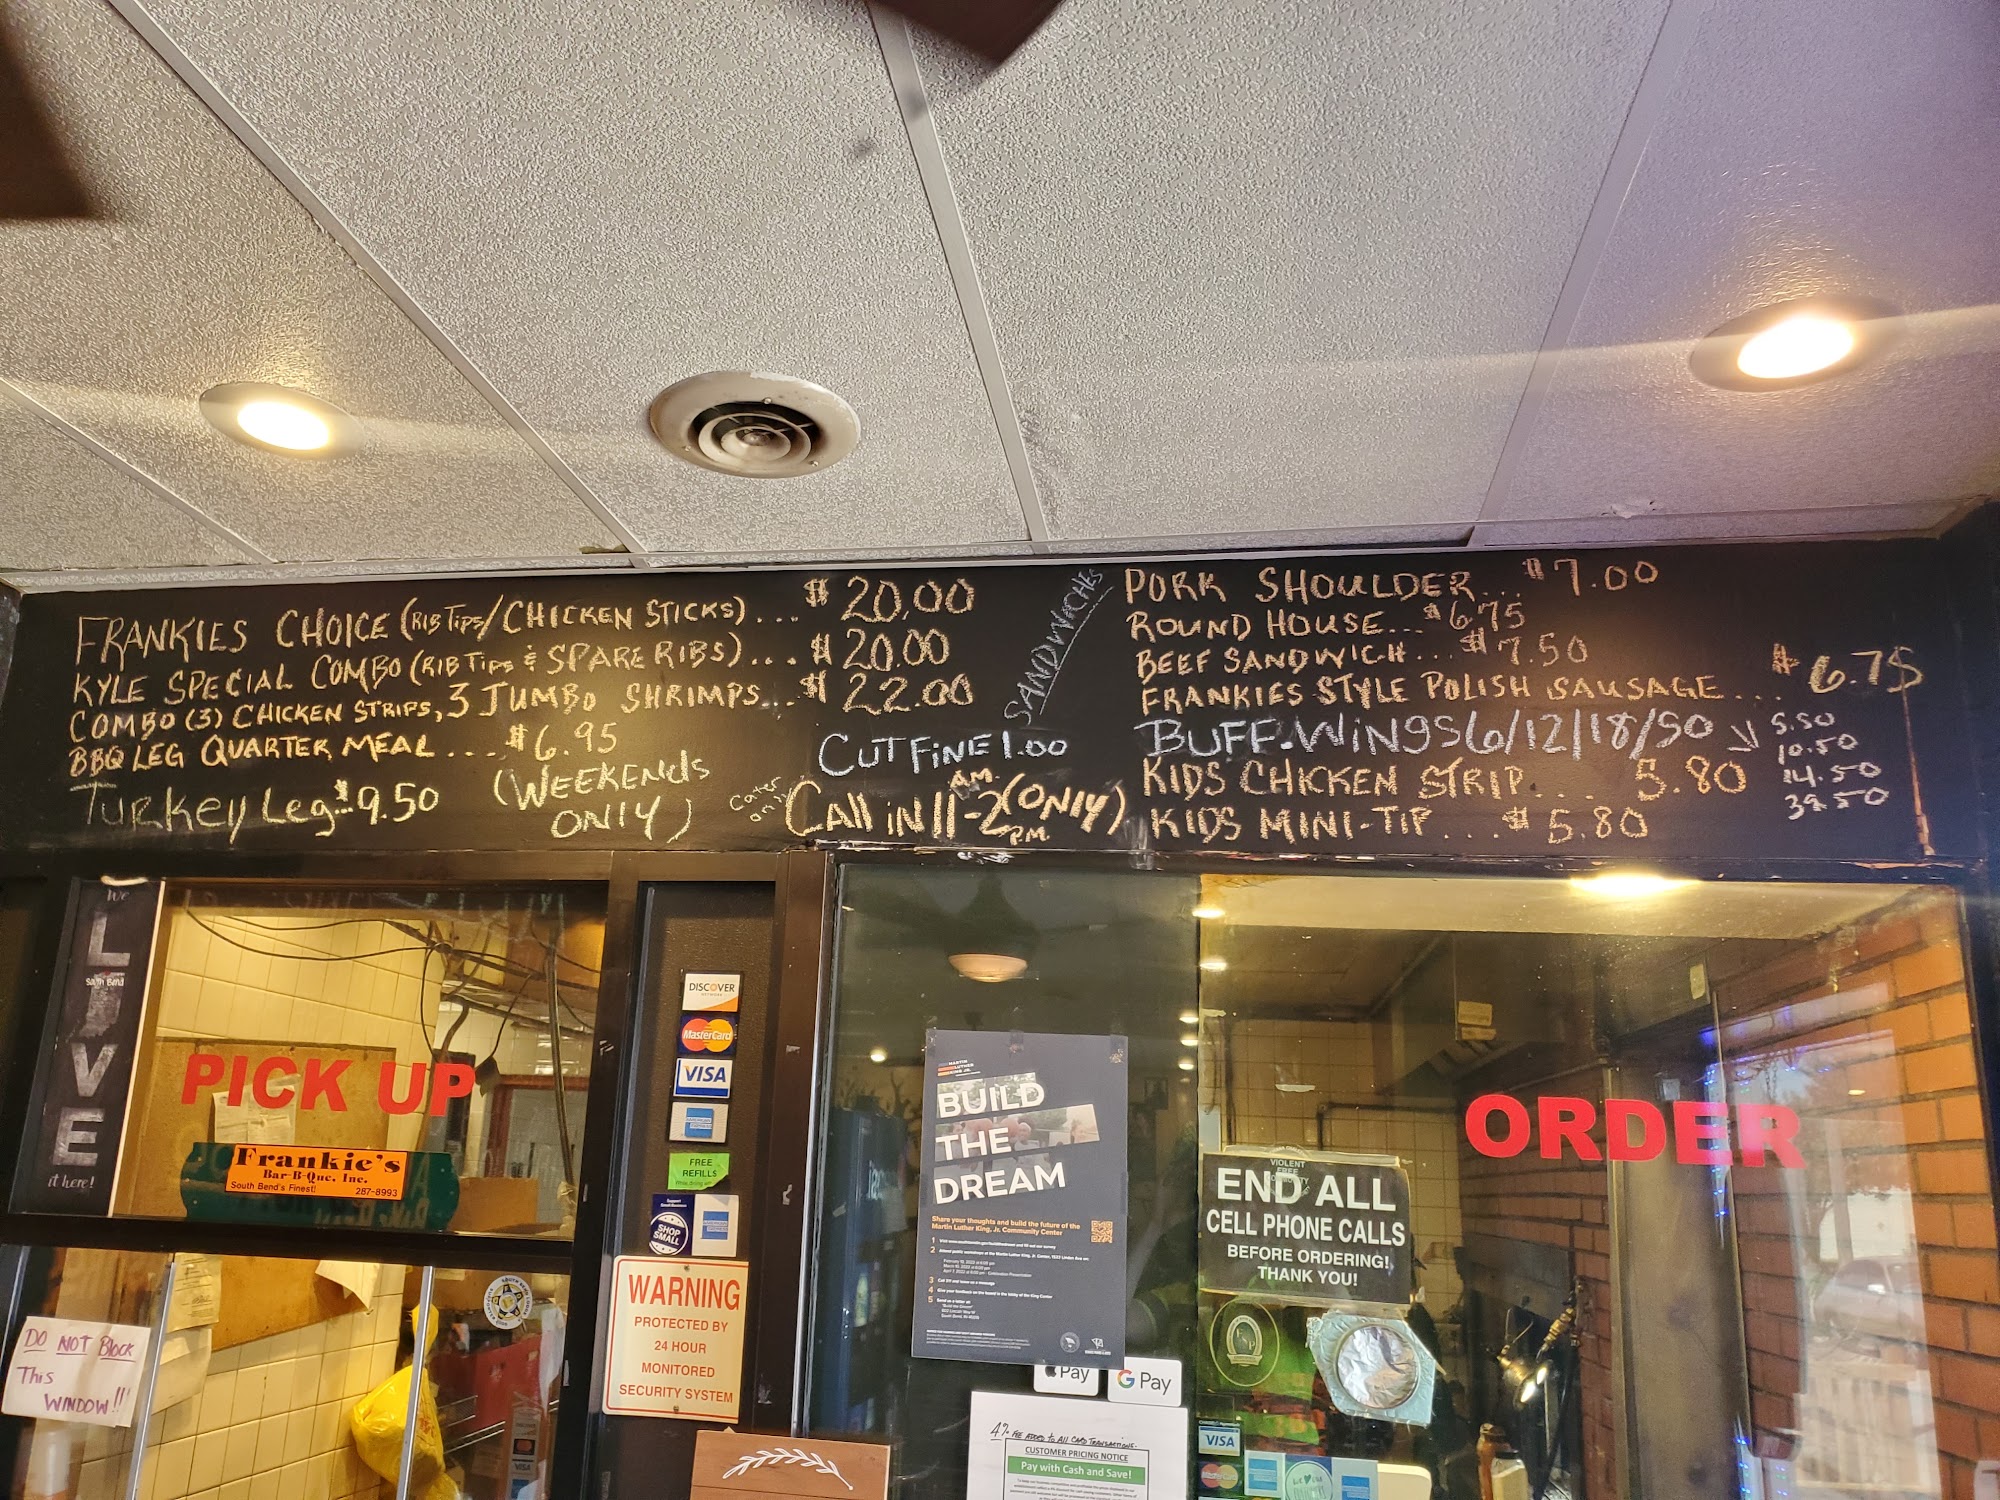 FRANKIES CHOICE (RIB TIPS/CHICKEN STICKS)... $20.00
KYLE SPECIAL COMBO (RIB TIPS & SPARE RIBS)... $20.00
COMBO (3) CHICKEN STRIPS, 3 JUMBO SHRIMPS... $22.00
BBQ LEG QUARTER MEAL .... $6.95
TURKEY Leg $9.50
(WEEKENDS
ONLY)
CUT FINE 1.00
Cater
only
CAll iN 11-2 (ONLY)
A.M.
P.M.
SANDWICHES
PORK SHOULDER... $7.00
ROUND HOUSE... $6.75
BEEF SANDWICH... $7.50
FRANKIES STYLE POLISH SAUSAGE... $6.75
BUFF. WINGS 6/12/18/50
5.50
10.50
14.50
39.50
KIDS CHICKEN STRIP... 5.80
KIDS MINI-TIP... $5.80
We
LIVE
South Bend
it here!
PICK UP
Frankie's
Bar-B-Que, Inc.
South Bend's Finest! 287-8993
DO NOT Block
This
WINDOW!!
DISCOVER
NETWORK
MasterCard
VISA
FREE
REFILLS
SHOP
SMALL
WARNING
PROTECTED BY
24 HOUR
MONITORED
SECURITY SYSTEM
MARTIN
LUTHER
KING JR.
BUILD
THE
DREAM
Share your thoughts and build the future of the
Martin Luther King, Jr. Community Center
Pay
G Pay
4% FEE ADDED TO ALL CARD TRANSACTIONS.
CUSTOMER PRICING NOTICE
Pay with Cash and Save!
ORDER
VIOLENT
FREE
END ALL
CELL PHONE CALLS
BEFORE ORDERING!
THANK YOU!
VISA
MasterCard
VISA